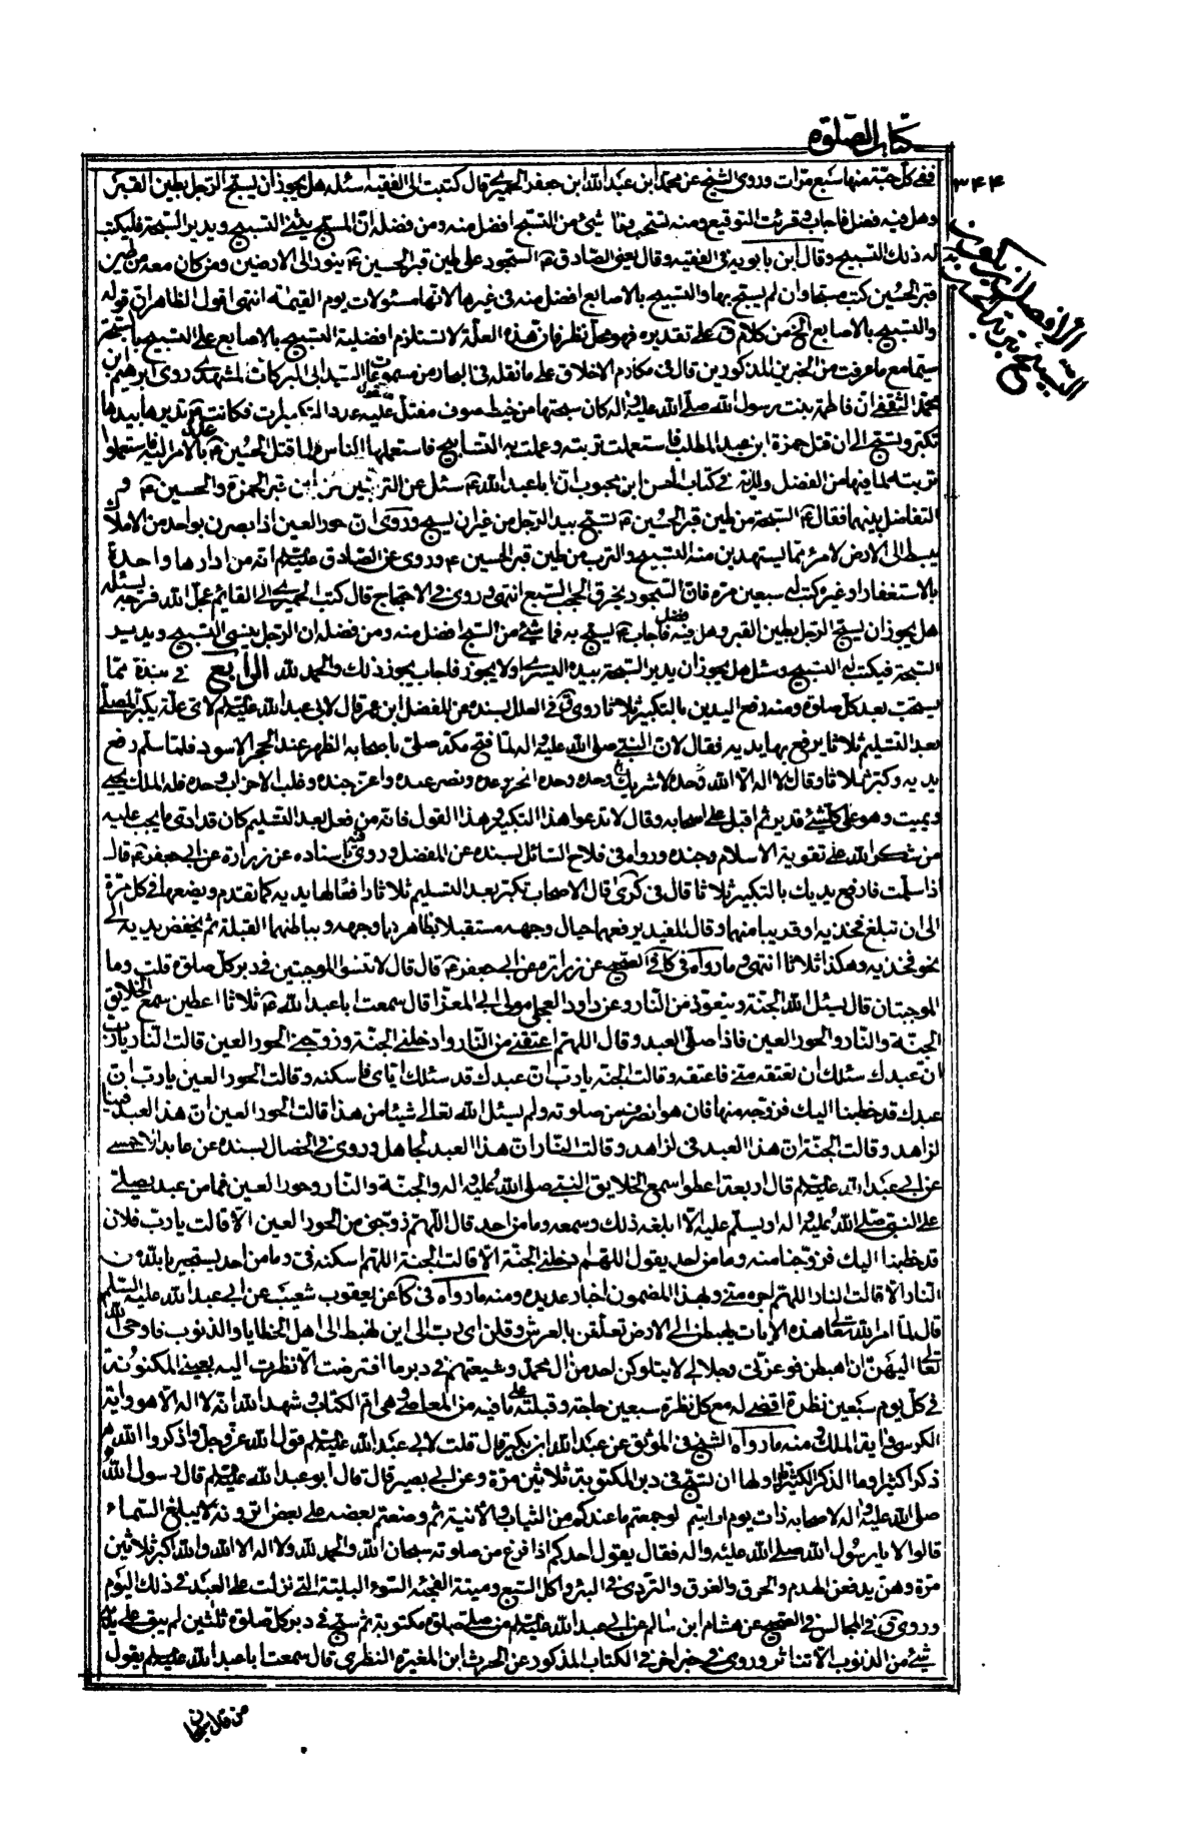 كتاب الصلوة
٣٤٤
ففي كل حبة منها سبع مرات وروى الشيخ عن محمد ابن عبد الله ابن جعفر الحميري قال كتبت الى الفقيه اسئله هل يجوز ان يسبح الرجل بطين القبر
وهل فيه فضل فاجاب وقرئت التوقيع ومنه نسخت تسبح به فما شيئ من التسبيح افضل منه ومن فضله ان المسبح ينسى التسبيح ويدير السبحة فيكتب
له ذلك التسبيح وقال ابن بابويه في الفقيه وقال يعني الصادق ع السجود على طين قبر الحسين ع ينور الى الارضين ومن كان معه من طين
قبر الحسين كتب مسبحا وان لم يسبح بها والتسبيح بالاصابع افضل منه في غيرها لانها مسئولات يوم القيمة انتهى اقول الظاهر ان قوله
والتسبيح بالاصابع الخ من كلام ق على تقديره فهو محل نظر فان هذه العلة لا تستلزم افضلية التسبيح بالاصابع على التسبيح بالسبحة
سيما مع ما عرفت من الخبرين المذكورين قال في مكارم الاخلاق على ما نقله في البحار من مسموعات السيد ابى البركات المشهدي روى ابرهيم ابن
محمد الثقفي ان فاطمة بنت رسول الله صلى الله عليه واله كان سبحتها من خيط صوف مفتل معقود عليه عدد التكبيرات فكانت ع تديرها بيدها
تكبر وتسبح الى ان قتل حمزة ابن عبد المطلب فاستعملت تربته وعملت به التسابيح فاستعملها الناس فلما قتل الحسين ع عدل بالامر اليه فاستعملوا
تربته لما فيها من الفضل والمزية في كتاب الحسن ابن محبوب ان ابا عبد الله ع سئل عن التربتين من طين قبر الحمزة والحسين ع و
التفاضل بينهما فقال ع السبحة من طين قبر الحسين ع تسبح بيد الرجل من غير ان يسبح وروى ان حور العين اذا بصرن بواحد من الاملاك
يهبط الى الارض لامر ما يستهدين منه التسبيح والترب من طين قبر الحسين ع وروى عن الصادق عليه السلم انه من ادارها واحدة
بالاستغفار او غيره كتب له سبعين مرة فان السجود يخرق الحجب السبع انتهى وروى في الاحتجاج قال كتب الحميري الى القائم عجل الله فرجه يسئله
هل يجوز ان يسبح الرجل بطين القبر وهل فيه فضل فاجاب ع يسبح به فما شيئ من السبح افضل منه ومن فضله ان الرجل ينسى التسبيح ويدير
السبحة فيكتب له التسبيح وسئل هل يجوز ان يدير السبحة بيده اليسرى او لا يجوز فاجاب يجوز ذلك والحمد لله الرابع في نبذة مما
يستحب بعد كل صلوة ومنه رفع اليدين بالتكبير ثلاثا روى ق في العلل بسنده عن المفضل ابن عمر قال لابى عبد الله عليه السلم لاى علة يكبر المصلى
بعد التسليم ثلاثا يرفع بها يديه فقال لان النبى صلى الله عليه واله لما فتح مكة صلى باصحابه الظهر عند الحجر الاسود فلما سلم رفع
يديه وكبر ثلاثا وقال لا اله الا الله وحده لا شريك له وحده وحده انجز وعده ونصر عبده واعز جنده وغلب الاحزاب وحده فله الملك يحيى
ويميت وهو على كل شيئ قدير ثم اقبل على اصحابه وقال لا تدعوا هذا التكبير وهذا القول فانه من فعل بعد التسليم كان قد ادى ما يجب عليه
من شكر الله على تقوية الاسلام وجنده ورواه في فلاح السائل بسنده عن المفضل وروى فيه باسناده عن زرارة عن ابى جعفر ع قال
اذا سلمت فارفع يديك بالتكبير ثلاثا قال في كرى قال الاصحاب تكبر بعد التسليم ثلاثا رافعا لها يديه كما تقدم ويضعهما في كل مرة
الى ان تبلغ فخذيه او قريبا منهما وقال المفيد يرفعهما حيال وجهه مستقبلا بظاهرهما وجهه وبباطنهما القبلة ثم يخفض يديه الى
نحو فخذيه وهكذا ثلاثا انتهى وما رواه في كا في الصحيح عن زرارة عن ابى جعفر ع قال قال لا تنسوا الموجبتين في دبر كل صلوة قلت وما
الموجبتان قال يسئل الله الجنة ويتعوذ من النار وعن داود العجلى مولى ابى المعزا قال سمعت ابا عبد الله ع ثلاثا اعطين سمع الخلايق
الجنة والنار والحور العين فاذا صلى العبد وقال اللهم اعتقنى من النار وادخلنى الجنة وزوجنى الحور العين قالت النار يا رب
ان عبدك سئلك ان تعتقه منى فاعتقه وقالت الجنة يا رب ان عبدك قد سئلك اياى فاسكنه وقالت الحور العين يا رب ان
عبدك قد خطبنا اليك فزوجه منها فان هو انصرف من صلوته ولم يسئل الله تعالى شيئا من هذا قالت الحور العين ان هذا العبد فينا
لزاهد وقالت الجنة ان هذا العبد في لزاهد وقالت النار ان هذا العبد لجاهل وروى في الخصال بسنده عن عابد الاحمسى
عن ابى عبد الله عليه السلم قال اربعة اعطوا سمع الخلايق النبى صلى الله عليه واله والجنة والنار وحور العين فما من عبد يصلى
على النبى صلى الله عليه واله او يسلم عليه الا ابلغه ذلك وسمعه وما من احد قال اللهم زوجنى من الحور العين الا قالت يا رب فلان
قد خطبنا اليك فزوجنا منه وما من احد يقول اللهم ادخلنى الجنة الا قالت الجنة اللهم اسكنه في وما من احد يستجير بالله من
النار الا قالت النار اللهم اجره منى ولهذا المضمون اخبار عديده ومنه ما رواه في كا عن يعقوب شعيب عن ابى عبد الله عليه السلم
قال لما امر الله تعالى هذه الايات يهبطن الى الارض تعلقن بالعرش وقلن اى رب الى اين تهبط الى اهل الخطايا والذنوب فاوحى الله
تعالى اليهن ان اهبطن فوعزتى وجلالى لا يتلوكن احد من ال محمد وشيعتهم في دبر ما افترضت الا نظرت اليه بعينى المكنونة
في كل يوم سبعين نظرة اقضى له مع كل نظرة سبعين حاجة وقبلته على ما فيه من المعاصى وهى ام الكتاب وشهد الله انه لا اله الا هو واية
الكرسى واية الملك ومنه ما رواه الشيخ في الموثق عن عبد الله ابن بكير قال قلت لابى عبد الله عليه السلم قول الله عز وجل واذكروا الله
ذكرا كثيرا وما الذكر الكثير قال اولها ان تسبح في دبر المكتوبة ثلاثين مرة وعن ابى بصير قال قال ابو عبد الله عليه السلم قال رسول الله
صلى الله عليه واله لاصحابه ذات يوم ارايتم لو جمعتم ما عندكم من الثياب والانية ثم وضعتم بعضه على بعض اترونه لا يبلغ السماء
قالوا لا يا رسول الله صلى الله عليه واله فقال يقول احدكم اذا فرغ من صلوته سبحان الله والحمد لله ولا اله الا الله والله اكبر ثلاثين
مرة وهن يدفعن الهدم والحرق والغرق والتردى في البئر واكل السبع وميتة الفجئة السوء البلية التى نزلت على العبد في ذلك اليوم
وروى ق في المجالس في الصحيح عن هشام ابن سالم عن ابى عبد الله عليه السلم من صلى صلوة مكتوبة ثم سبح في دبر كل صلوة ثلثين لم يبق على بدنه
شيئ من الذنوب الا تناثر وروى في خبر اخر في الكتاب المذكور عن الحرث ابن المغيرة النظرى قال سمعت ابا عبد الله عليه السلم يقول
من قال سبحان